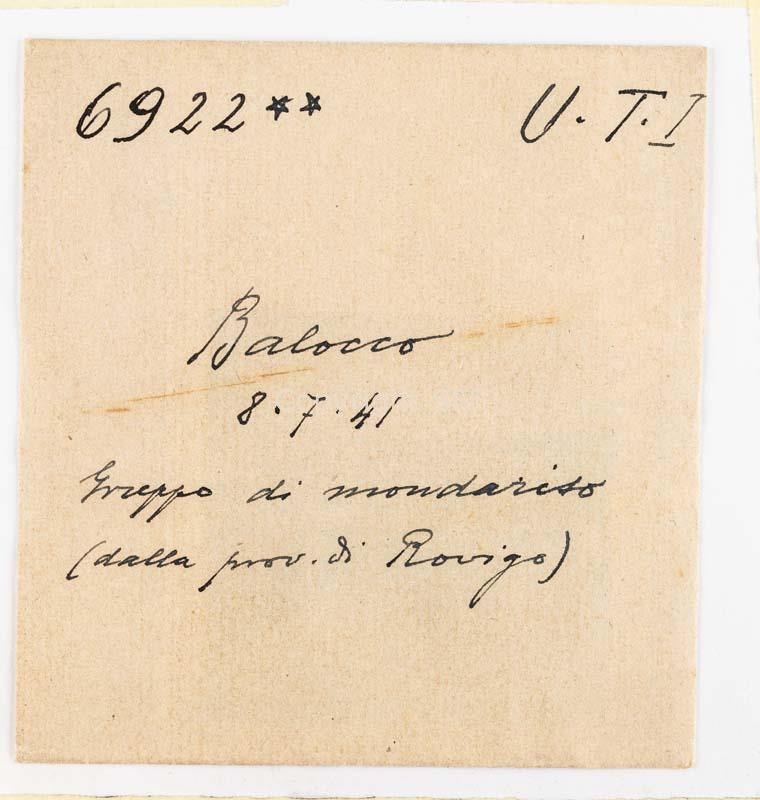 6922** U.T.I
Balocco
8.7.41
Gruppo di mondariso
(dalla prov. di Rovigo)